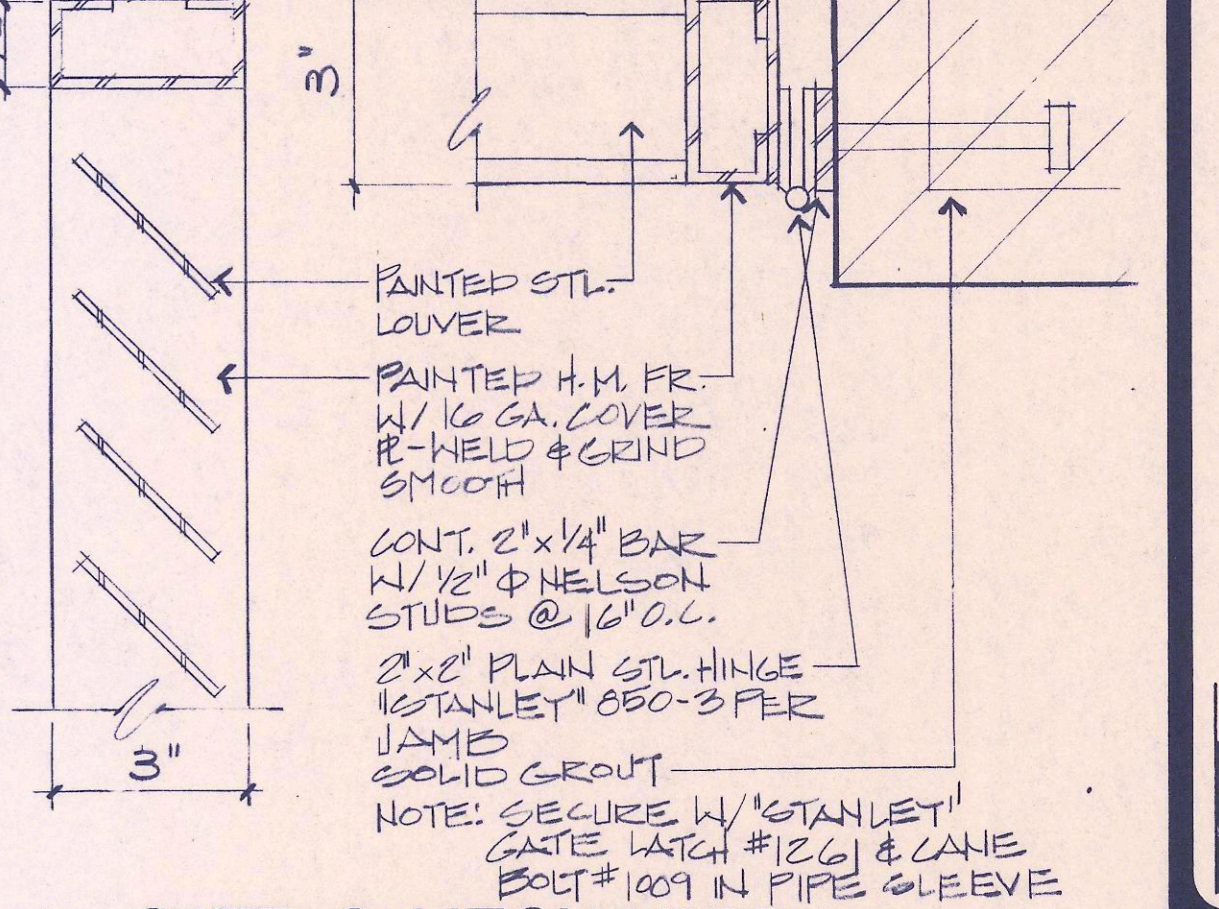 3"
PAINTED STL.
LOUVER
PAINTED H.M. FR.
W/ 16 GA. COVER
PL-WELD & GRIND
SMOOTH
CONT. 2"x1/4" BAR
W/ 1/2" Φ NELSON
STUDS @ 16" O.C.
2"x2" PLAIN STL. HINGE
"STANLEY" 850-3 PER
JAMB
SOLID GROUT
3"
NOTE: SECURE W/ "STANLEY"
GATE LATCH #1261 & CANE
BOLT #1009 IN PIPE SLEEVE